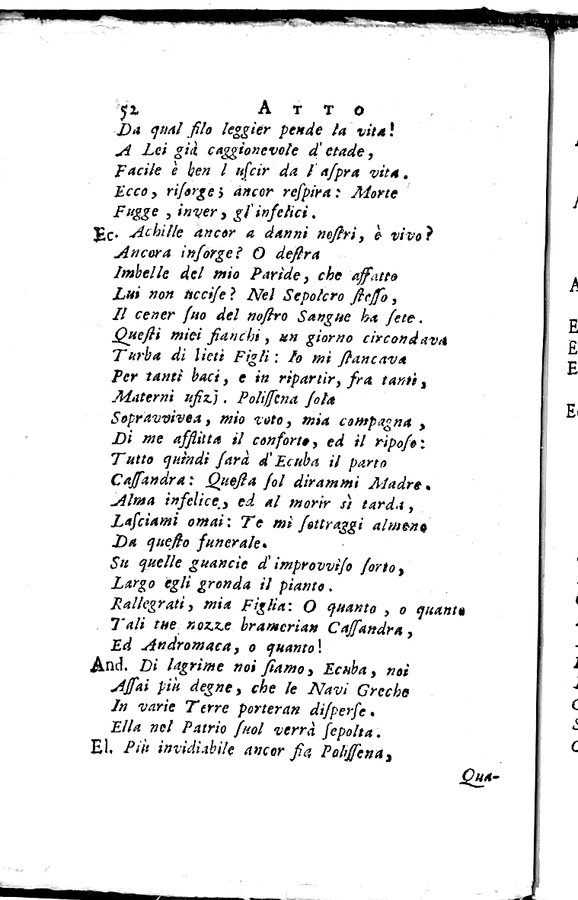 52 ATTO
Da qual filo leggier pende la vita!
A Lei già caggionevole d'etade,
Facile è ben l uſcir da l'aſpra vita.
Ecco, riſorge; ancor reſpira: Morte
Fugge, inver, gl'infelici.
Ec. Achille ancor a danni noſtri, è vivo?
Ancora inſorge? O deſtra
Imbelle del mio Paride, che affatto
Lui non ucciſe? Nel Sepolcro ſteſſo,
Il cener ſuo del noſtro Sangue ha ſete.
Queſti miei fianchi, un giorno circondava
Turba di lieti Figli: Io mi ſtancava
Per tanti baci, e in ripartir, fra tanti,
Materni ufizj. Poliſſena ſola
Sopravvivea, mio voto, mia compagna,
Di me afflitta il conforto, ed il ripoſo:
Tutto quindi ſarà d'Ecuba il parto
Caſſandra: Queſta ſol dirammi Madre.
Alma infelice, ed al morir sì tarda,
Laſciami omai: Te mi ſottraggi almeno
Da queſto funerale.
Su quelle guancie d'improvviſo ſorto,
Largo egli gronda il pianto.
Rallegrati, mia Figlia: O quanto, o quanto
Tali tue nozze bramerian Caſſandra,
Ed Andromaca, o quanto!
And. Di lagrime noi ſiamo, Ecuba, noi
Aſſai più degne, che le Navi Greche
In varie Terre porteran diſperſe.
Ella nel Patrio ſuol verrà ſepolta.
El. Più invidiabile ancor fia Poliſſena,
Qua-